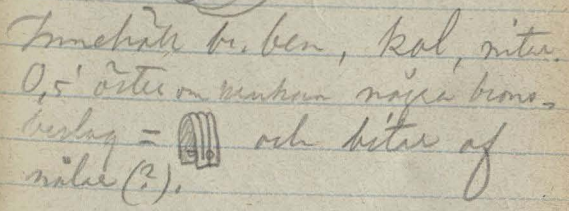 Innehöll br. ben, kol, nitar.
0,5' öster om urnan några brons-
beslag = och bitar af
nålar (?).